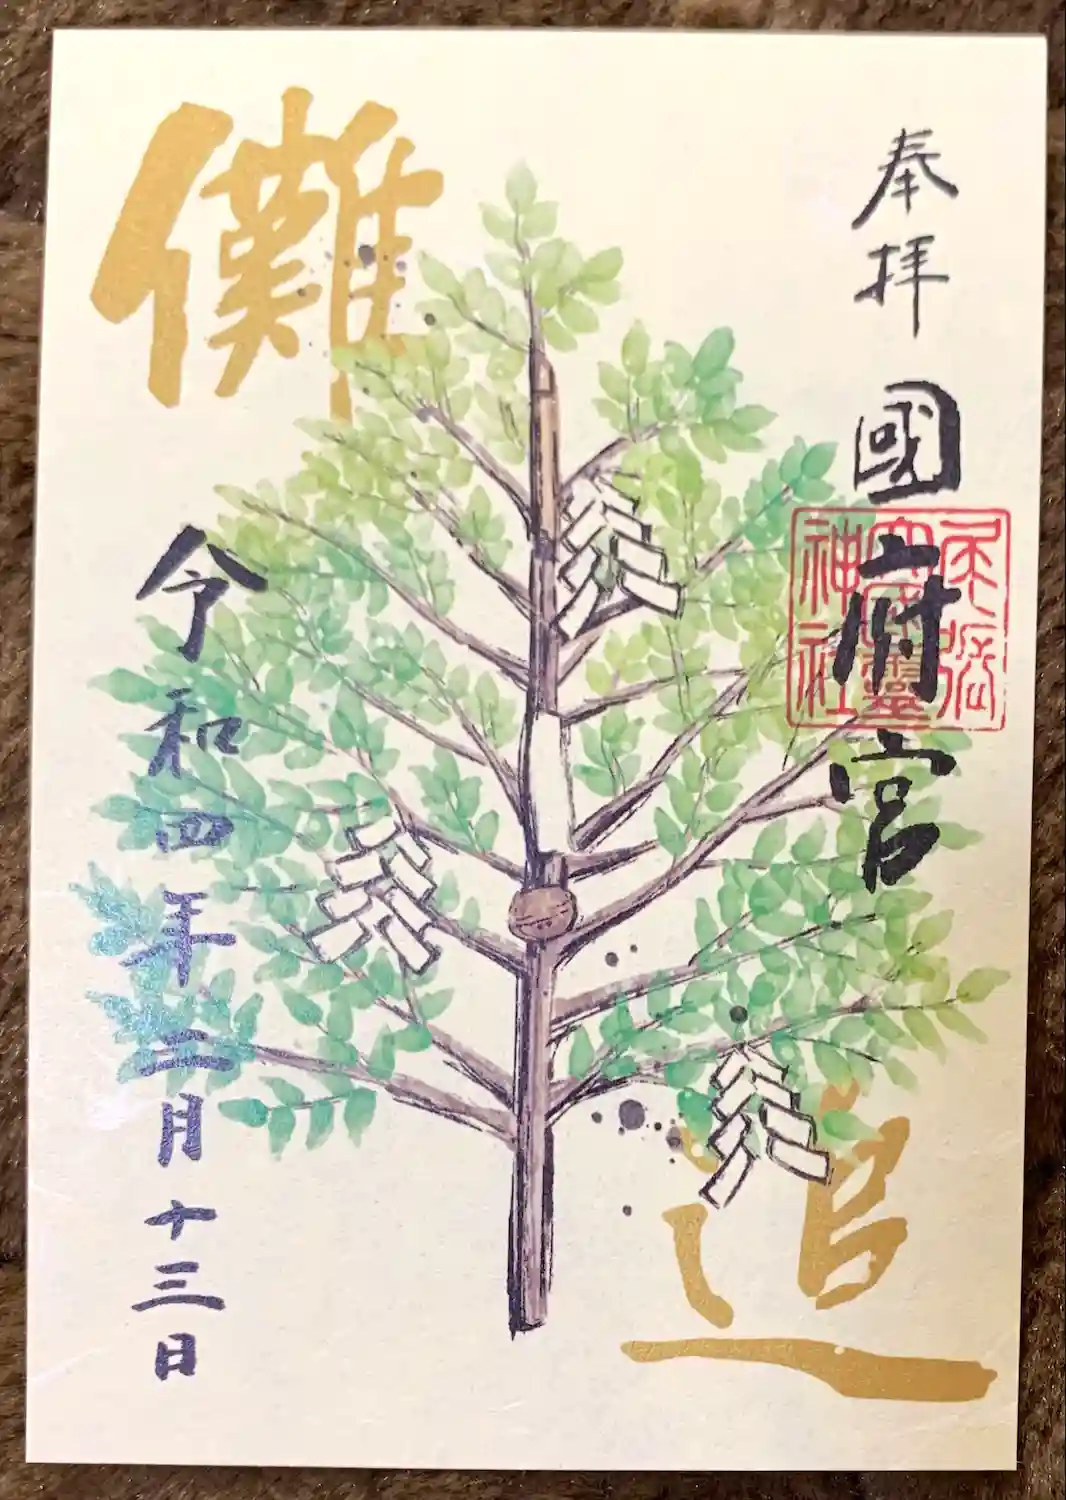 奉拝
國府宮
尾張
大國靈
神社
儺追
令和四年二月十三日